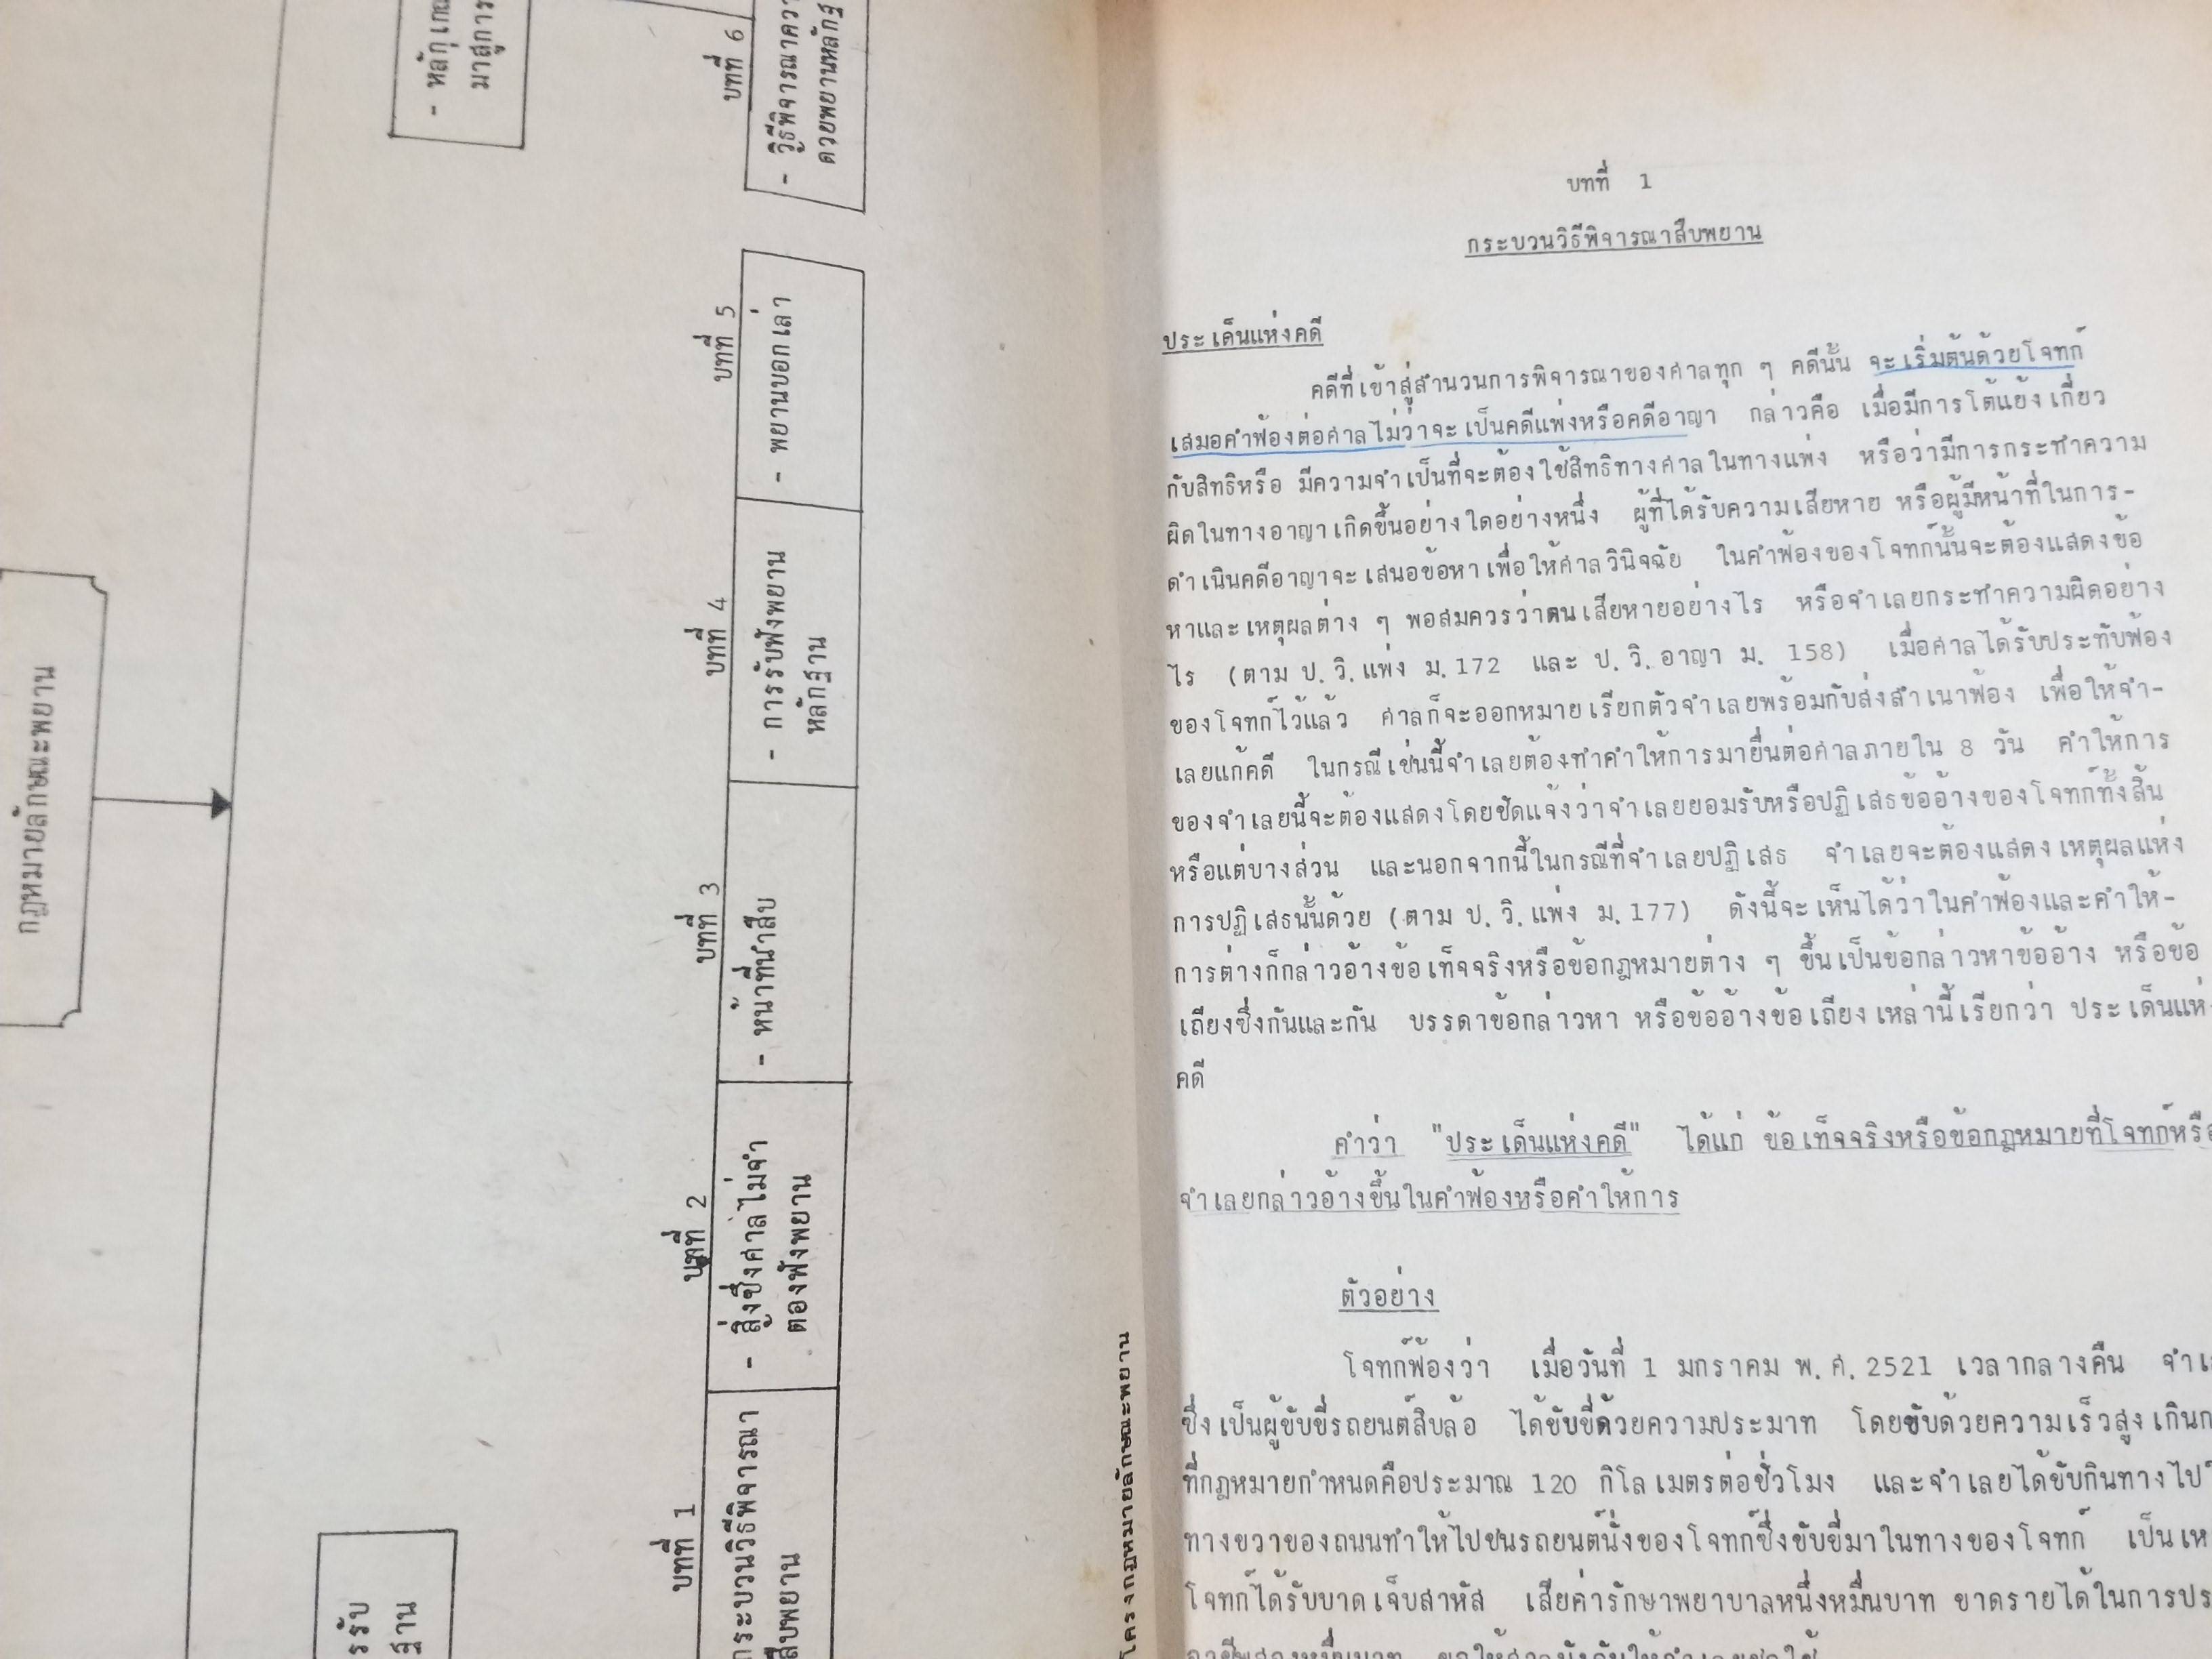 กฎหมายลักษณะพยาน
- หลัก
มาสู่การ
รรับ
ฐาน
บทที่ 1
กระบวนวิธีพิจารณา
สืบพยาน
บทที่ 2
- สิ่งซึ่งศาลไม่จำ
ตองฟังพยาน
บทที่ 3
- หน้าที่นำสืบ
บทที่ 4
- การรับฟังพยาน
หลักฐาน
บทที่ 5
- พยานบอกเล่า
บทที่ 6
- วิธีพิจารณาควา
ดวยพยานหลักฐ
โครงกฎหมายลักษณะพยาน
บทที่ 1
กระบวนวิธีพิจารณาสืบพยาน
ประเด็นแห่งคดี
คดีที่เข้าสู่สำนวนการพิจารณาของศาลทุก ๆ คดีนั้น จะเริ่มต้นด้วยโจทก์
เสมอคำฟ้องต่อศาลไม่ว่าจะเป็นคดีแพ่งหรือคดีอาญา กล่าวคือ เมื่อมีการโต้แย้งเกี่ยว
กับสิทธิหรือ มีความจำเป็นที่จะต้องใช้สิทธิทางศาลในทางแพ่ง หรือว่ามีการกระทำความ
ผิดในทางอาญาเกิดขึ้นอย่างใดอย่างหนึ่ง ผู้ที่ได้รับความเสียหาย หรือผู้มีหน้าที่ในการ-
ดำเนินคดีอาญาจะเสนอข้อหาเพื่อให้ศาลวินิจฉัย ในคำฟ้องของโจทก์นั้นจะต้องแสดงข้อ
หาและเหตุผลต่าง ๆ พอสมควรว่าตนเสียหายอย่างไร หรือจำเลยกระทำความผิดอย่าง
ไร (ตาม ป.วิ.แพ่ง ม.172 และ ป.วิ.อาญา ม. 158) เมื่อศาลได้รับประทับฟ้อง
ของโจทก์ไว้แล้ว ศาลก็จะออกหมายเรียกตัวจำเลยพร้อมกับส่งสำเนาฟ้อง เพื่อให้จำ-
เลยแก้คดี ในกรณีเช่นนี้จำเลยต้องทำคำให้การมายื่นต่อศาลภายใน 8 วัน คำให้การ
ของจำเลยนี้จะต้องแสดงโดยชัดแจ้งว่าจำเลยยอมรับหรือปฏิเสธข้ออ้างของโจทก์ทั้งสิ้น
หรือแต่บางส่วน และนอกจากนี้ในกรณีที่จำเลยปฏิเสธ จำเลยจะต้องแสดงเหตุผลแห่ง
การปฏิเสธนั้นด้วย (ตาม ป.วิ.แพ่ง ม.177) ดังนี้จะเห็นได้ว่าในคำฟ้องและคำให้-
การต่างก็กล่าวอ้างข้อเท็จจริงหรือข้อกฎหมายต่าง ๆ ขึ้นเป็นข้อกล่าวหาข้ออ้าง หรือข้อ
เถียงซึ่งกันและกัน บรรดาข้อกล่าวหา หรือข้ออ้างข้อเถียงเหล่านี้เรียกว่า ประเด็นแห่
คดี
คำว่า "ประเด็นแห่งคดี" ได้แก่ ข้อเท็จจริงหรือข้อกฎหมายที่โจทก์หรือ
จำเลยกล่าวอ้างขึ้นในคำฟ้องหรือคำให้การ
ตัวอย่าง
โจทก์ฟ้องว่า เมื่อวันที่ 1 มกราคม พ.ศ.2521 เวลากลางคืน จำเ
ซึ่งเป็นผู้ขับขี่รถยนต์สิบล้อ ได้ขับขี่ด้วยความประมาท โดยขับด้วยความเร็วสูงเกินก
ที่กฎหมายกำหนดคือประมาณ 120 กิโลเมตรต่อชั่วโมง และจำเลยได้ขับกินทางไป
ทางขวาของถนนทำให้ไปชนรถยนต์นั่งของโจทก์ซึ่งขับขี่มาในทางของโจทก์ เป็นเห
โจทก์ได้รับบาดเจ็บสาหัส เสียค่ารักษาพยาบาลหนึ่งหมื่นบาท ขาดรายได้ในการปร